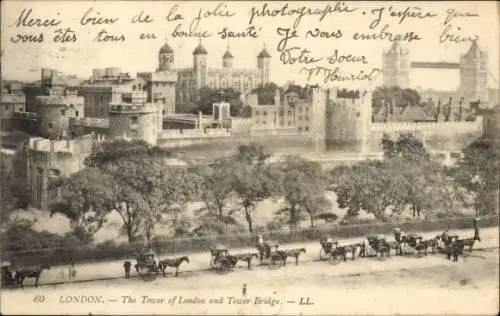 Merci bien de la jolie photographie. J'espère que
vous êtes tous en bonne santé. Je vous embrasse bien
Votre Soeur
60 LONDON. — The Tower of London and Tower Bridge. — LL.